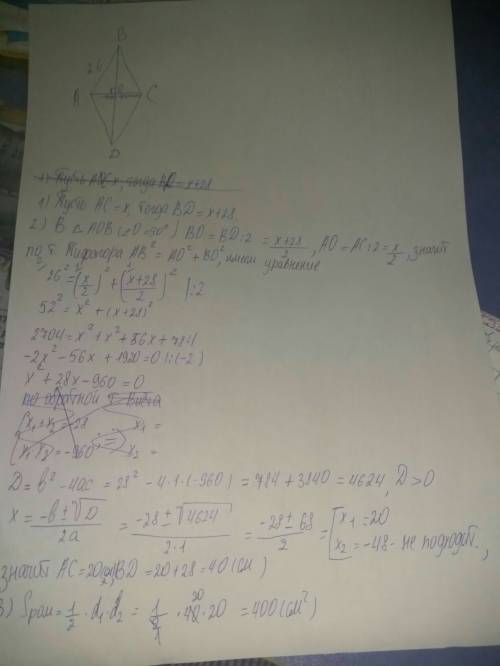 B
26
A O C
D
1) Пусть AC = x, тогда BD = x+28
1) Пусть AC = x, тогда BD = x+28.
2) В △ AOB (∠O=90°) BO = BD:2 = x+28/2, AO = AC:2 = x/2, значит
по т. Пифагора AB² = AO² + BO², имеем уравнение
26² = (x/2)² + (x+28/2)² |:2
52² = x² + (x+28)²
2704 = x² + x² + 56x + 784
-2x² - 56x + 1920 = 0 |:(-2)
x² + 28x - 960 = 0
по обратной т. Виета
x₁ + x₂ = -28 x₁ =
x₁ · x₂ = -960 x₂ =
D = b² - 4ac = 28² - 4·1·(-960) = 784 + 3840 = 4624, D>0
x = -b±√D/2a = -28±√4624/2·1 = -28±68/2 = [x₁ = 20
x₂ = -48 - не подходит.,
значит AC = 20, BD = 20+28 = 40 (см)
3) Sром = 1/2 · d₁ · d₂ = 1/2 · 40 · 20 = 400 (см²)